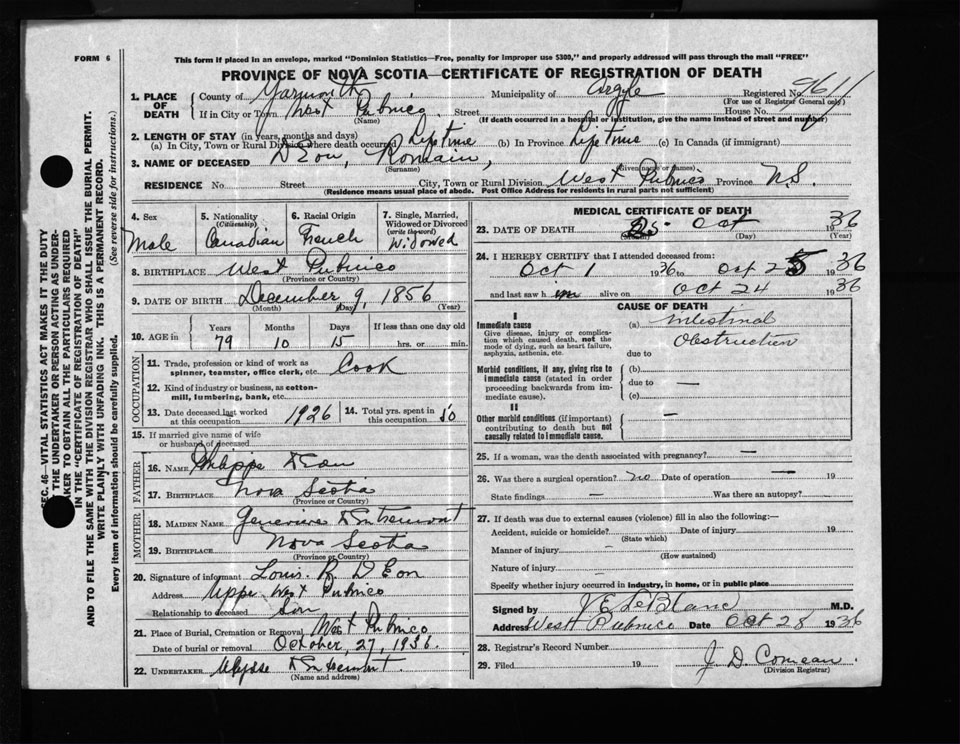 FORM 6
This form if placed in an envelope, marked "Dominion Statistics—Free, penalty for improper use $300," and properly addressed will pass through the mail "FREE"
PROVINCE OF NOVA SCOTIA—CERTIFICATE OF REGISTRATION OF DEATH
1. PLACE OF DEATH
County of Yarmouth Municipality of Argyle Registered No. 9611
(For use of Registrar General only)
If in City or Town West Pubnico Street House No.
(Name) (If death occurred in a hospital or institution, give the name instead of street and number)
2. LENGTH OF STAY (in years, months and days)
(a) In City, Town or Rural Division where death occurred Life time (b) In Province Life time (c) In Canada (if immigrant)
3. NAME OF DECEASED D'Eon, Romain,
(Surname) (Given name or names)
RESIDENCE No. Street City, Town or Rural Division West Pubnico Province N.S.
(Residence means usual place of abode. Post Office Address for residents in rural parts not sufficient)
4. Sex Male
5. Nationality (Citizenship) Canadian
6. Racial Origin French
7. Single, Married, Widowed or Divorced (write the word) Widowed
8. BIRTHPLACE West Pubnico
(Province or Country)
9. DATE OF BIRTH December 9, 1856
(Month) (Day) (Year)
10. AGE in Years 79 Months 10 Days 15 If less than one day old hrs. or min.
OCCUPATION
11. Trade, profession or kind of work as spinner, teamster, office clerk, etc. Cook
12. Kind of industry or business, as cotton-mill, lumbering, bank, etc.
13. Date deceased last worked at this occupation 1926
14. Total yrs. spent in this occupation 50
15. If married give name of wife or husband of deceased
FATHER
16. NAME Philippe D'Eon
17. BIRTHPLACE Nova Scotia
(Province or Country)
MOTHER
18. MAIDEN NAME Genevieve D'Entremont
19. BIRTHPLACE Nova Scotia
(Province or Country)
20. Signature of informant Louis R. D'Eon
Address Upper West Pubnico
Relationship to deceased Son
21. Place of Burial, Cremation or Removal West Pubnico
Date of burial or removal October, 27, 1936.
22. UNDERTAKER Ulysse D'Entremont.
(Name and address)
MEDICAL CERTIFICATE OF DEATH
23. DATE OF DEATH 25 Oct 1936
(Month) (Day) (Year)
24. I HEREBY CERTIFY that I attended deceased from:
Oct 1 1936 to Oct 25 1936
and last saw him alive on Oct 24 1936
CAUSE OF DEATH
I
Immediate cause
Give disease, injury or complication which caused death, not the mode of dying, such as heart failure, asphyxia, asthenia, etc.
(a) Intestinal
Obstruction
due to
Morbid conditions, if any, giving rise to immediate cause (stated in order proceeding backwards from immediate cause).
(b)
due to —
(c)
II
Other morbid conditions (if important) contributing to death but not causally related to immediate cause.
—
25. If a woman, was the death associated with pregnancy? —
26. Was there a surgical operation? no Date of operation — 19
State findings — Was there an autopsy? -
27. If death was due to external causes (violence) fill in also the following:—
Accident, suicide or homicide? Date of injury 19
(State which)
Manner of injury —
(How sustained)
Nature of injury —
Specify whether injury occurred in industry, in home, or in public place
Signed by J E LeBlanc M.D.
Address West Pubnico Date Oct 28 1936
28. Registrar's Record Number
29. Filed 19 J. D. Comeau.
(Division Registrar)
SEC. 46—VITAL STATISTICS ACT MAKES IT THE DUTY
THE UNDERTAKER OR PERSON ACTING AS UNDER-
TAKER TO OBTAIN ALL THE PARTICULARS REQUIRED
IN THE "CERTIFICATE OF REGISTRATION OF DEATH"
AND TO FILE THE SAME WITH THE DIVISION REGISTRAR WHO SHALL ISSUE THE BURIAL PERMIT.
WRITE PLAINLY WITH UNFADING INK. THIS IS A PERMANENT RECORD.
Every item of information should be carefully supplied. (See reverse side for instructions.)